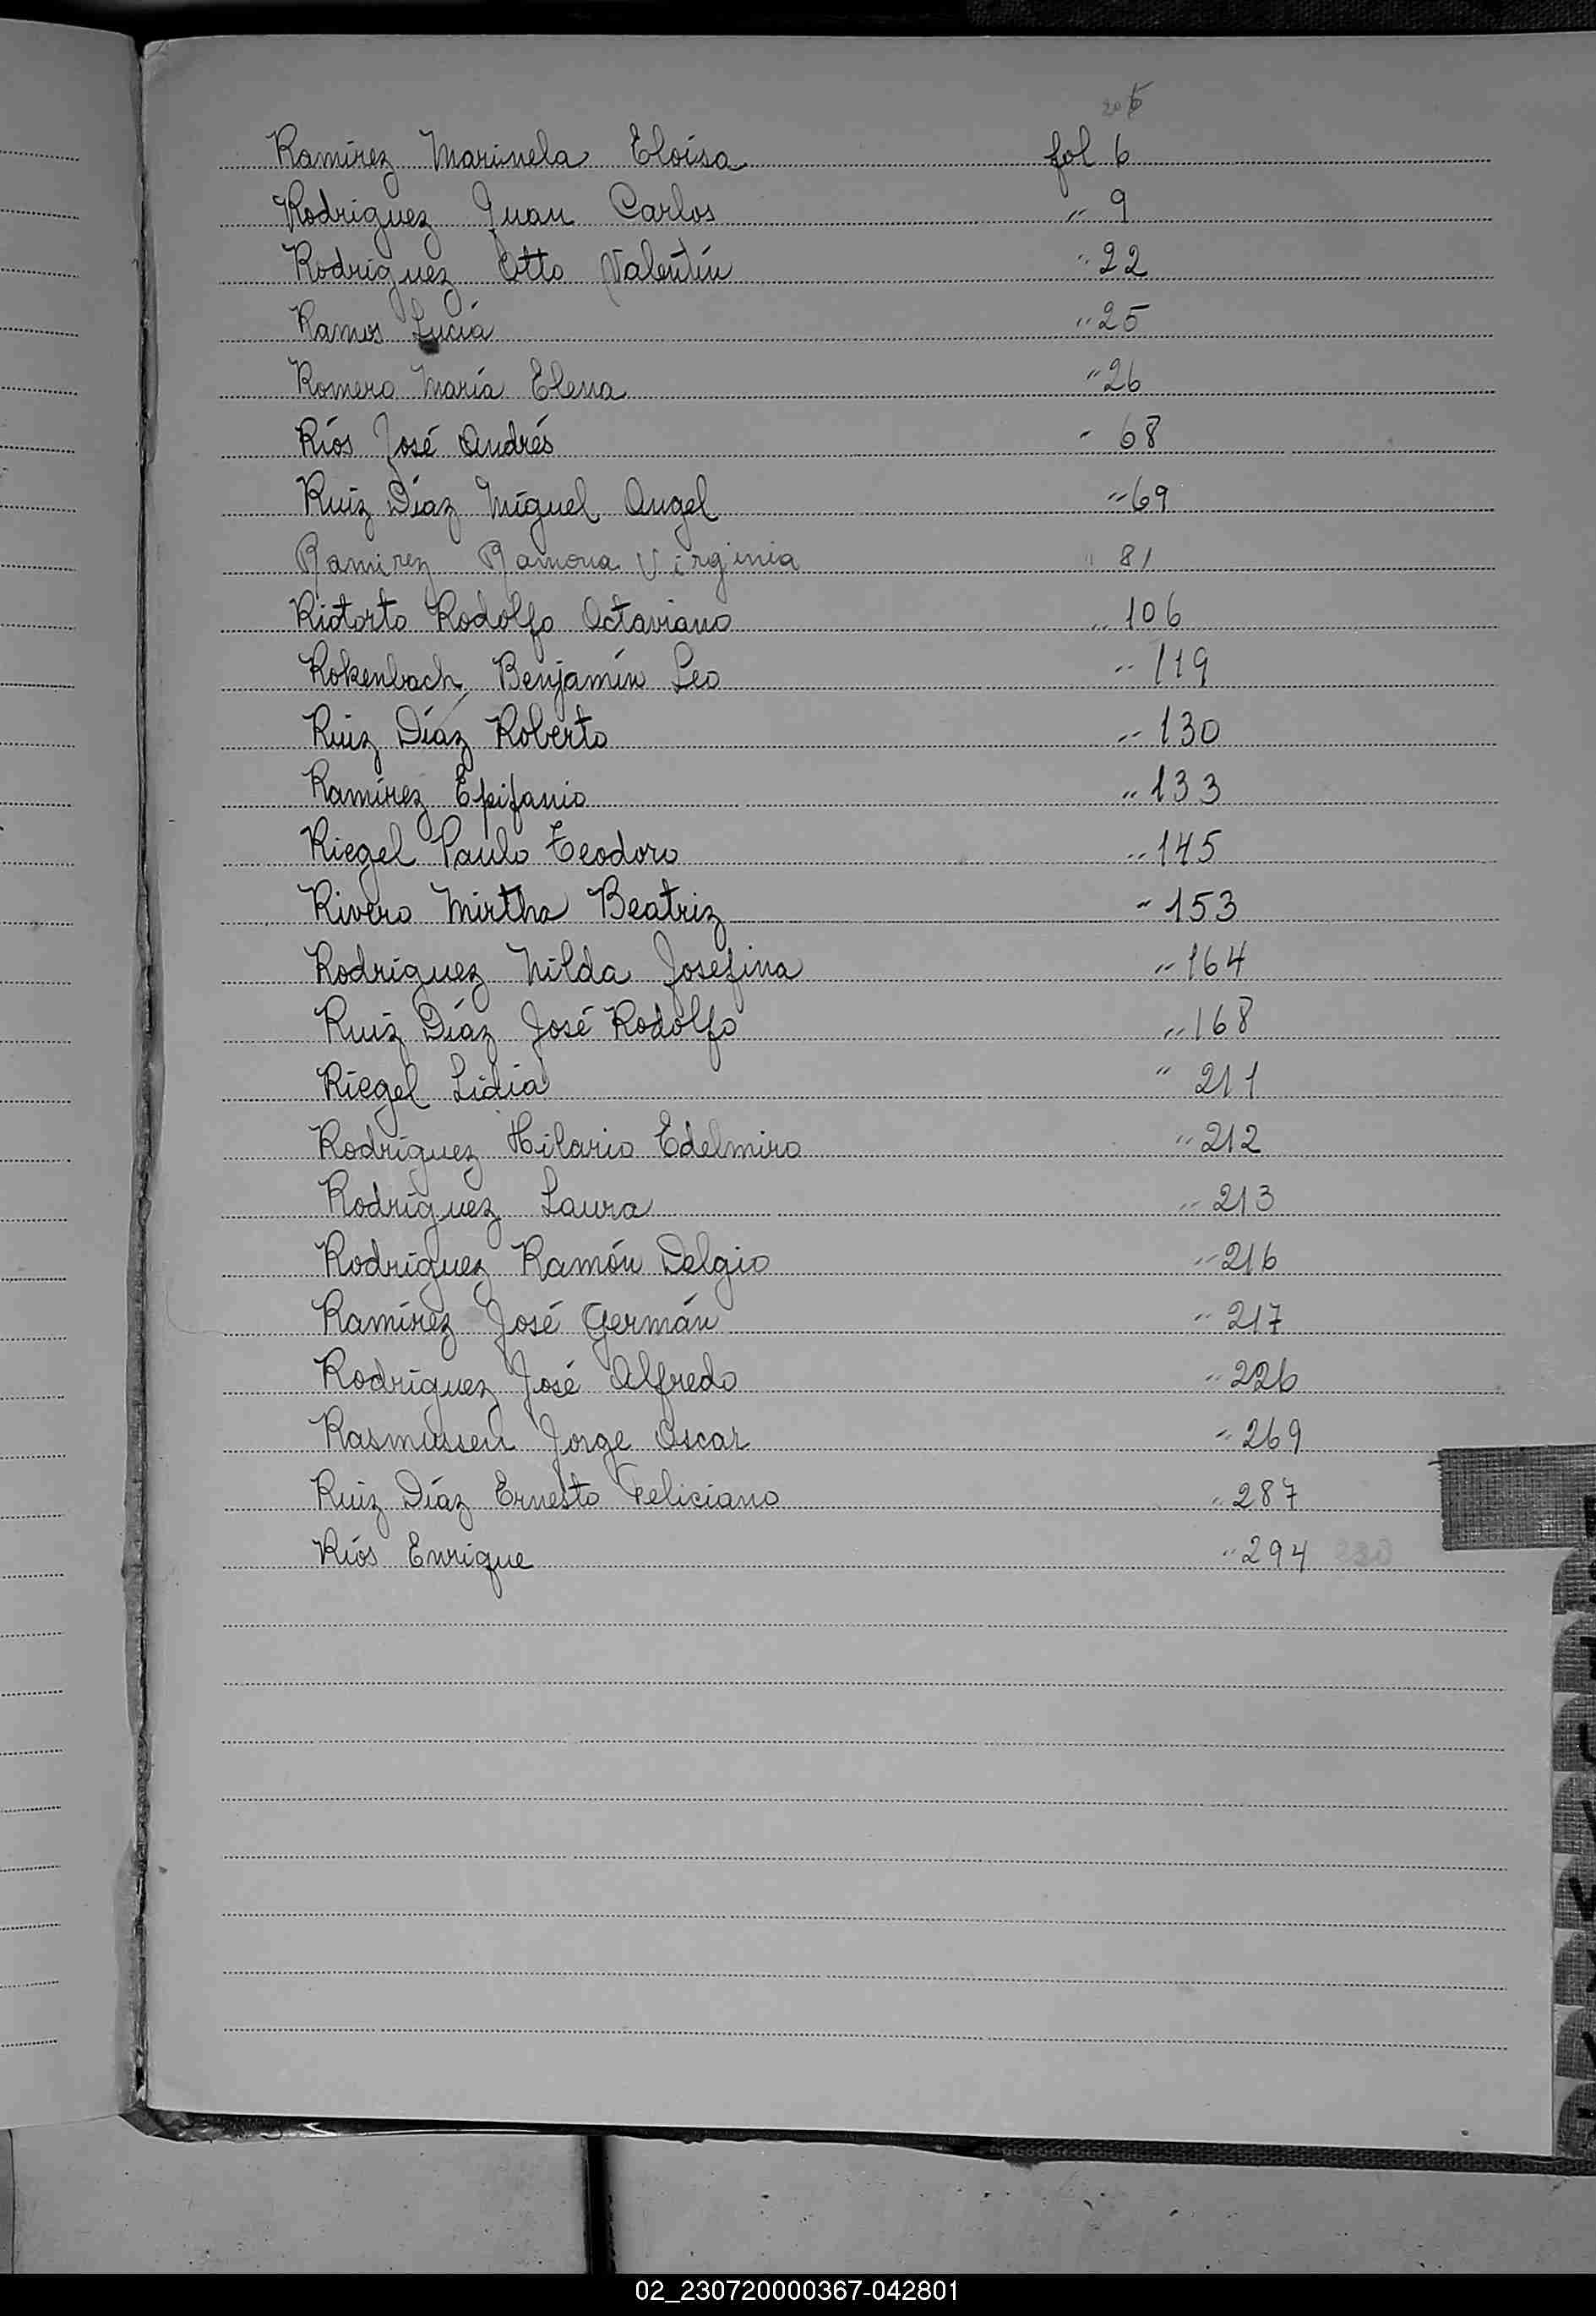 Ramírez Marinela Eloísa fol 6
Rodríguez Juan Carlos " 9
Rodríguez Otto Valentín " 22
Ramos Lucía " 25
Romero María Elena " 26
Ríos José Andrés " 68
Ruiz Díaz Miguel Angel " 69
Ramirez Ramona Virginia " 81
Riotorto Rodolfo Octaviano " 106
Rokenbach, Benjamín Leo " 119
Ruiz Díaz Roberto " 130
Ramírez Epifanio " 133
Riegel Paulo Teodoro " 145
Rivero Mirtha Beatriz " 153
Rodríguez Nilda Josefina " 164
Ruiz Díaz José Rodolfo " 168
Riegel Lidia " 211
Rodríguez Hilario Edelmiro " 212
Rodríguez Laura " 213
Rodríguez Ramón Delgio " 216
Ramírez José Germán " 217
Rodríguez José Alfredo " 226
Rasmussen Jorge Oscar " 269
Ruiz Díaz Ernesto Feliciano " 287
Ríos Enrique " 294
02_230720000367-042801